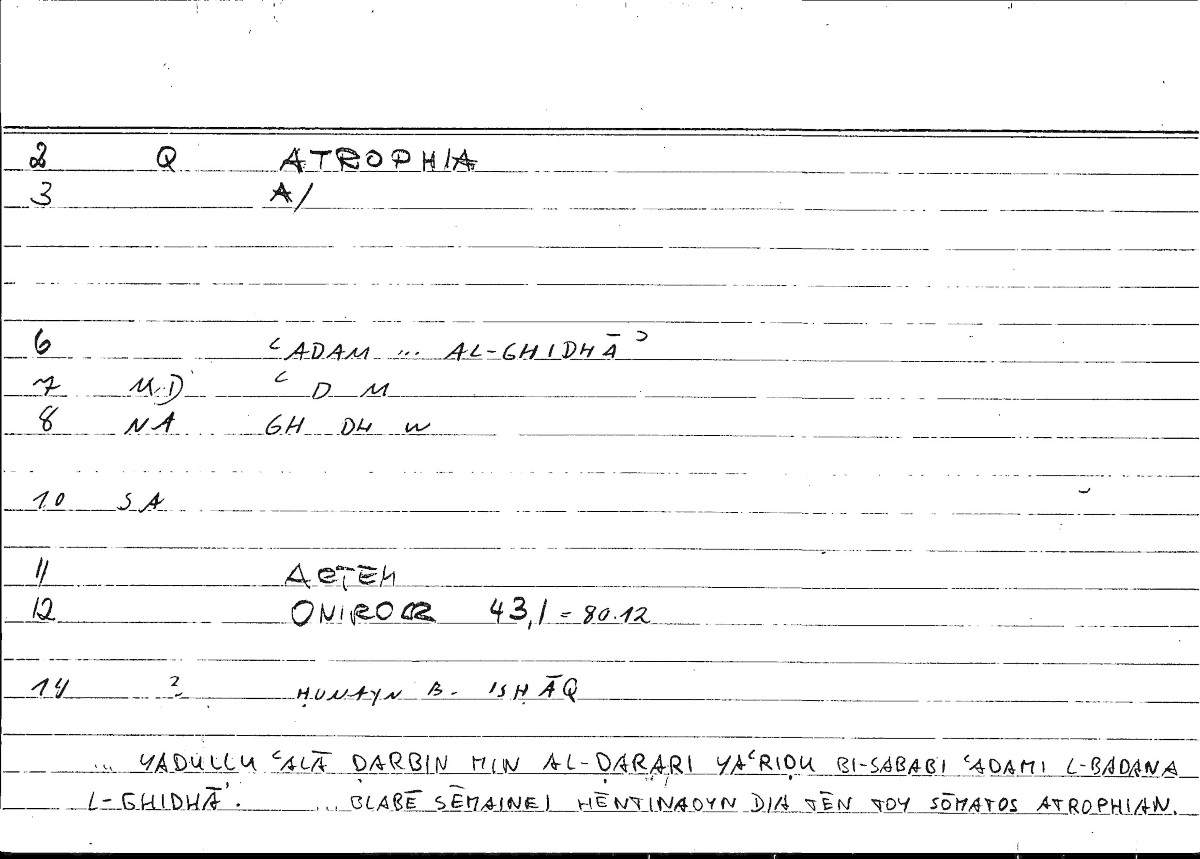 2 Q ATROPHIA
3 A/
6 ʿADAM ... AL-GHIDHĀʾ
7 MD ʿ D M
8 NA GH DH W
10 SA
11 ARTEM
12 ONIROCR 43,1 = 80.12
14 ? ḤUNAYN B. ISḤĀQ
... YADULLU ʿALĀ ḌARBIN MIN AL-ḌARARI YAʿRIḌU BI-SABABI ʿADAMI L-BADANA
L-GHIDHĀʾ. ... BLABĒ SĒMAINEI HĒNTINAOYN DIA TĒN TOY SŌMATOS ATROPHIAN.